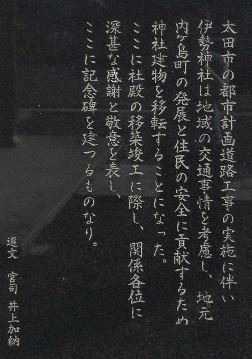 太田市の都市計画道路工事の実施に伴い
伊勢神社は地域の交通事情を考慮し、地元
内ケ島町の発展と住民の安全に貢献するため
神社建物を移転することになった。
ここに社殿の移築竣工に際し、関係各位に
深甚な感謝と敬意を表し、
ここに記念碑を建つるものなり。
撰文 宮司 井上加納